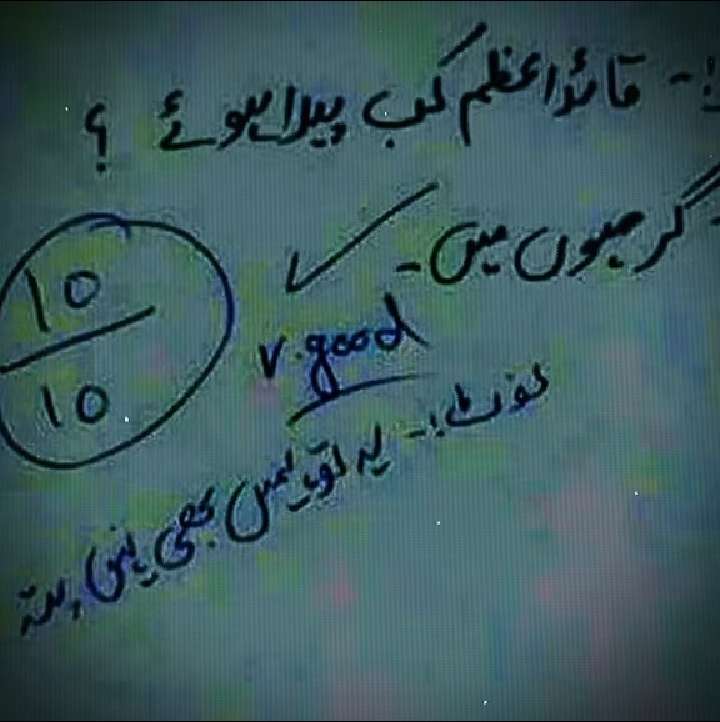 !- قائداعظم کب پیدا ہوئے ؟
گرمیوں میں -
10
10
v.good
نوٹ!:- یہ تو ہمیں بھی نہیں پتہ